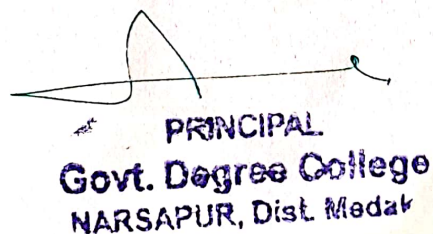 PRINCIPAL
Govt. Degree College
NARSAPUR, Dist. Medak